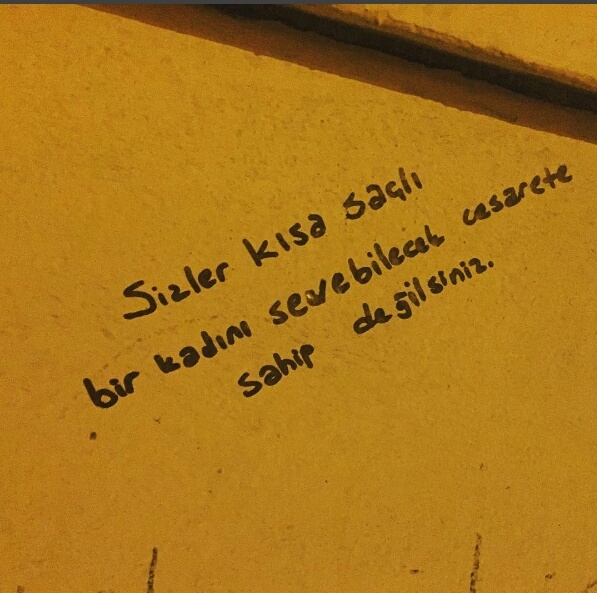 Sizler kısa saçlı
bir kadını sevebilecek cesarete
sahip değilsiniz.